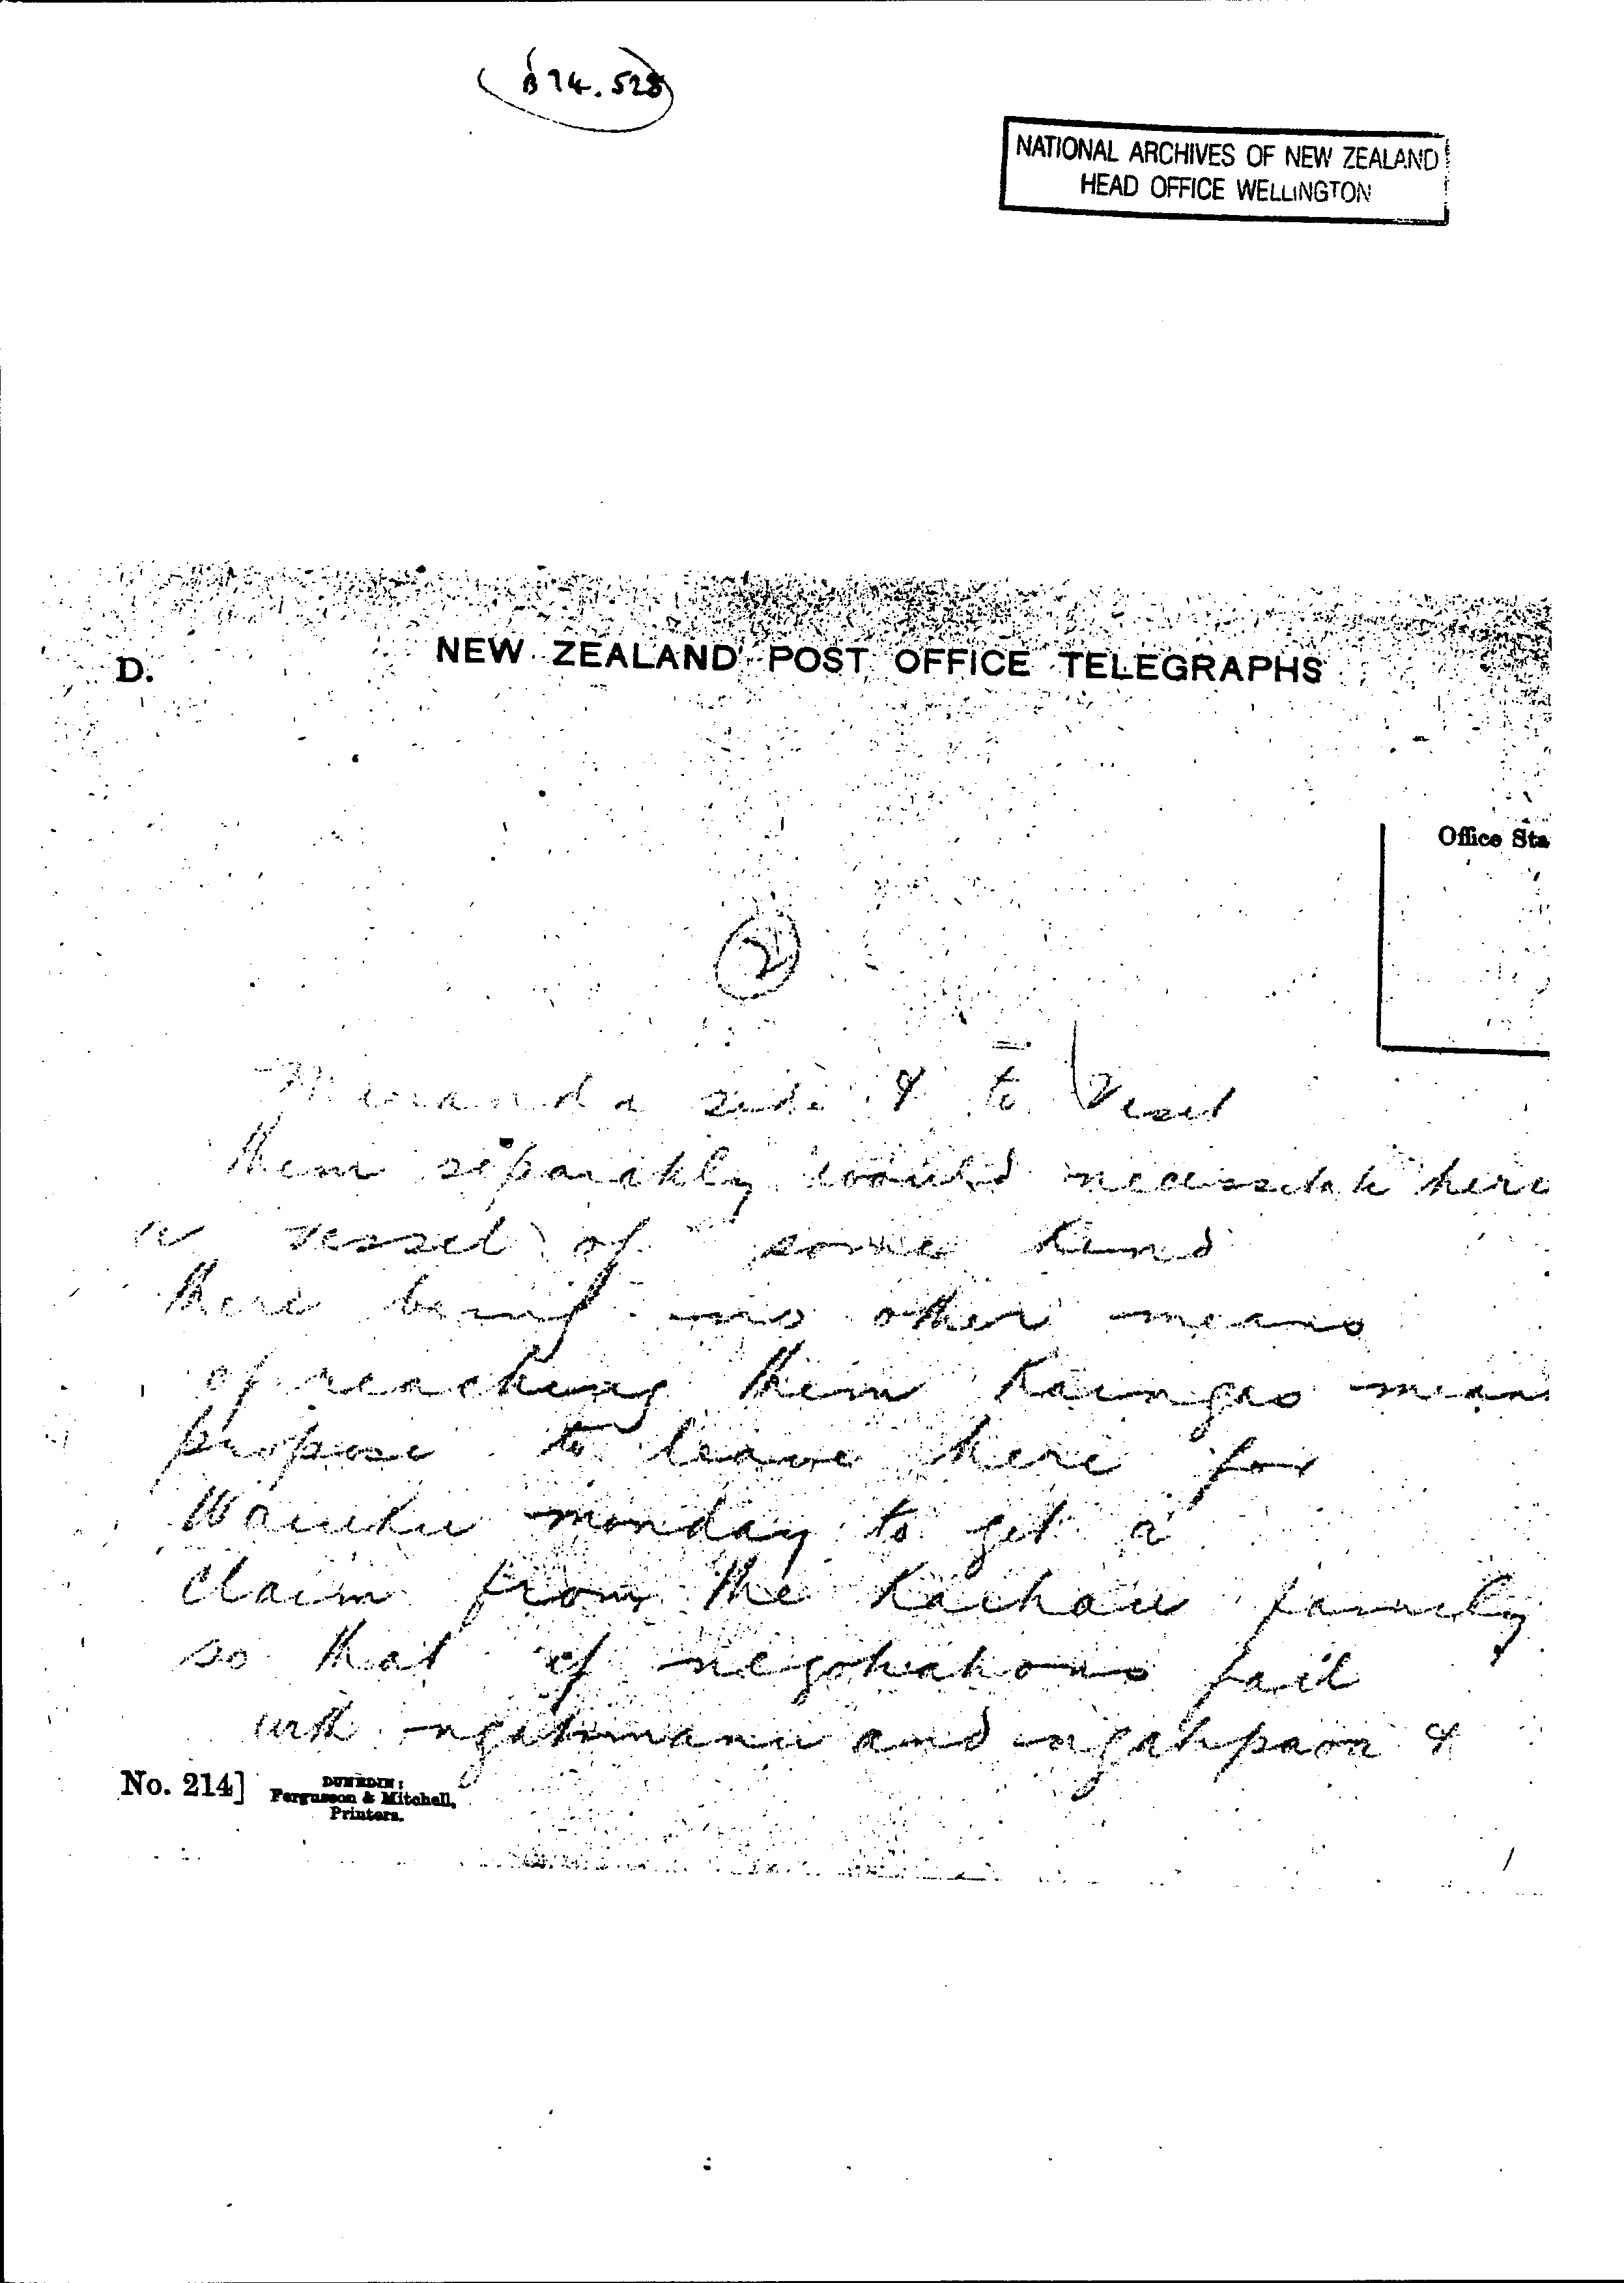 B74.528
NATIONAL ARCHIVES OF NEW ZEALAND
HEAD OFFICE WELLINGTON
D.
NEW ZEALAND POST OFFICE TELEGRAPHS
Office Sta
2
Miranda side & to visit
them separately would necessitate here
a vessel of some kind
there being no other means
of reaching them Kaingas mean
propose to leave here for
Waiuku monday to get a
claim from the Kaihau family
so that if negotiations fail
with ngatimaniu and ngatipaoa &
No. 214]
DUNEDIN:
Fergusson & Mitchell,
Printers.